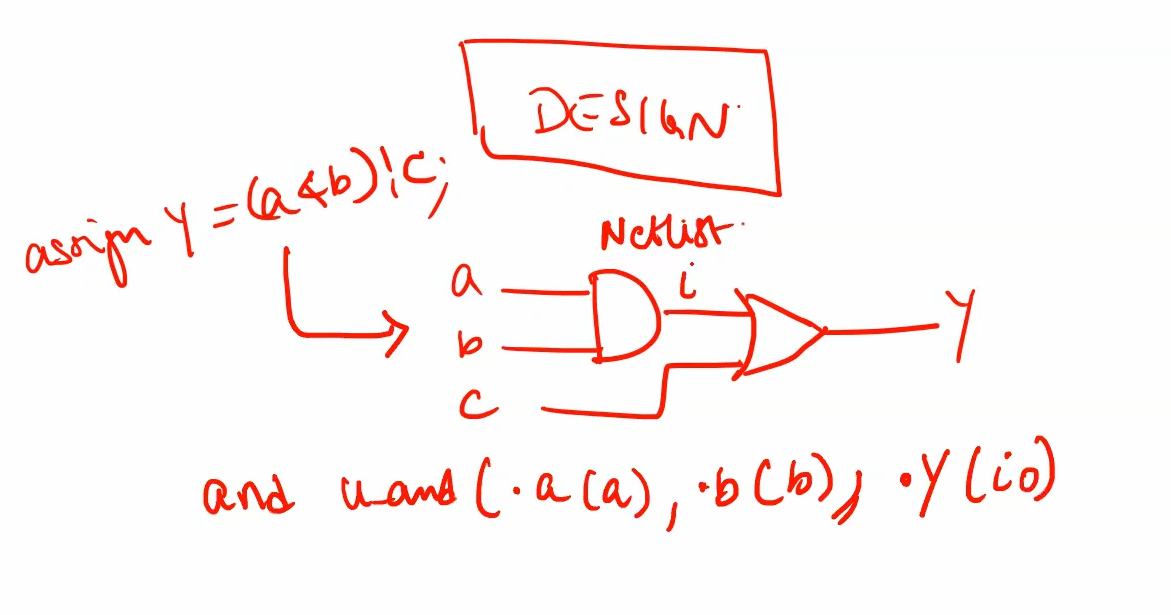 DESIGN
assign Y = (a&b)|c;
Netlist
a
i
Y
b
c
and u_and(.a(a), .b(b), .Y(i0)